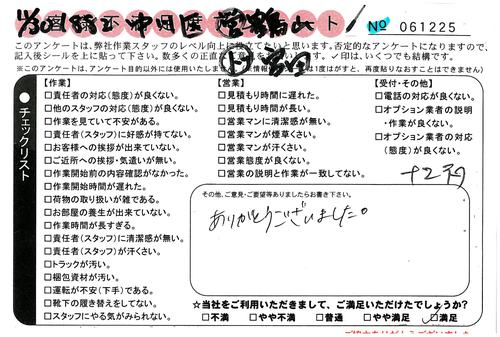 № 061225
このアンケートは、弊社作業スタッフのレベル向上に役立てたいと思います。否定的なアンケートになりますので、
記入後シールを上に貼って下さい。数多くの正直な
✓印は、いくつでも結構です。
※このアンケートは、アンケート目的以外には使用いたしません
1度はがすと、再度貼りなおすことはできません)
チェックリスト
【作業】
□責任者の対応(態度)が良くない。
□他のスタッフの対応(態度)が良くない。
□作業を見ていて不安がある。
□責任者(スタッフ)に好感が持てない。
□お客様への挨拶が出来ていない。
□ご近所への挨拶・気遣いが無い。
□作業開始前の内容確認がなかった。
□作業開始時間が遅れた。
□荷物の取り扱いが雑である。
□お部屋の養生が出来ていない。
□作業時間が長すぎる。
□責任者(スタッフ)に清潔感が無い。
□責任者(スタッフ)が汗くさい。
□トラックが汚い。
□梱包資材が汚い。
□運転が不安(下手)である。
□靴下の履き替えをしてない。
□スタッフにやる気がみられない。
【営業】
□見積もり時間に遅れた。
□見積もり時間が長い。
□営業マンに清潔感が無い。
□営業マンが煙草くさい。
□営業マンが汗くさい。
□営業態度が良くない。
□営業の説明と作業が一致してない。
【受付・その他】
□電話の対応が良くない。
□オプション業者の説明
・作業が良くない。
□オプション業者の対応
(態度)が良くない。
その他、ご意見・ご要望等ありましたらお書き下さい。
ありがとうございました。
☆当社をご利用いただきまして、ご満足いただけたでしょうか?
□不満 □やや不満 □普通 □やや満足 □満足